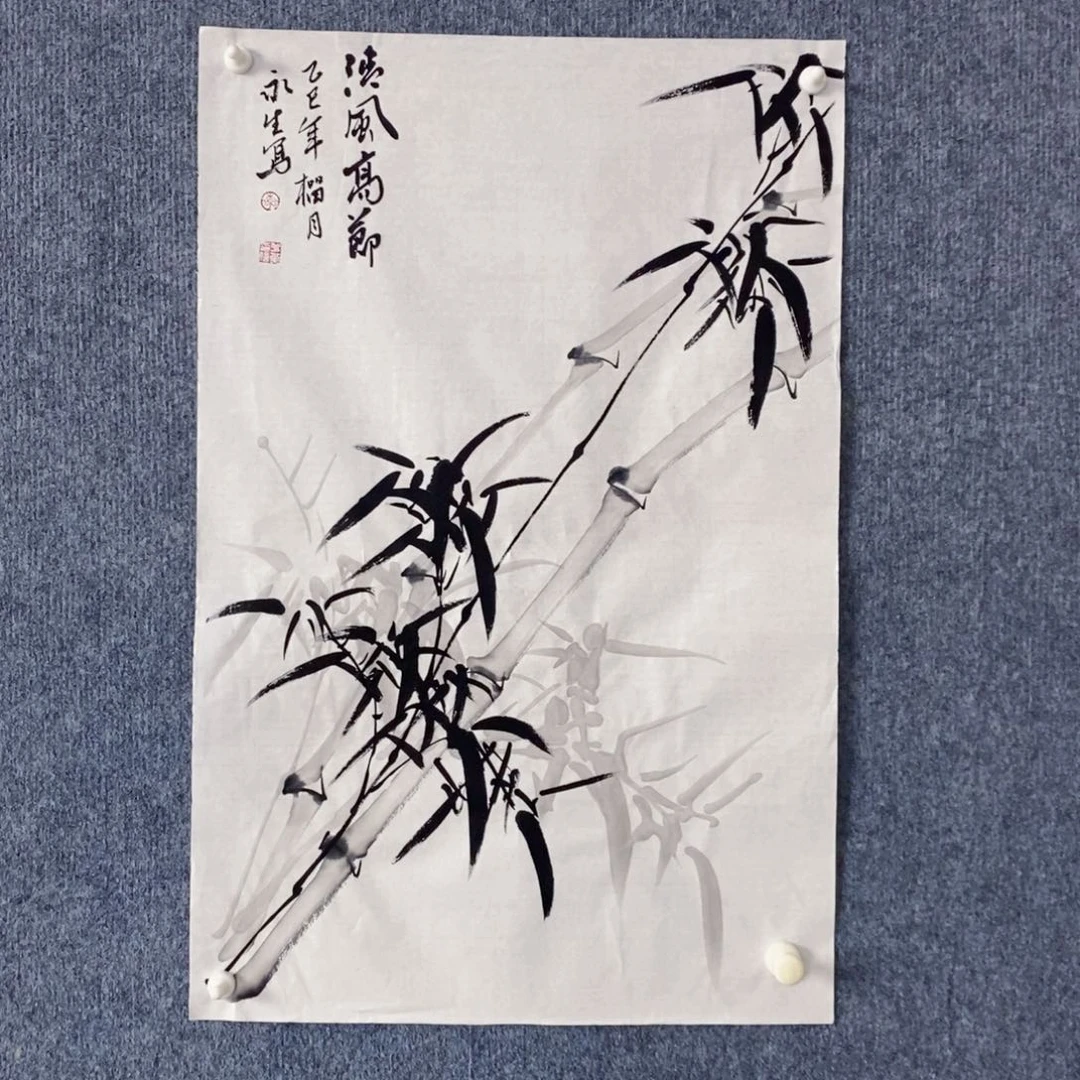 清风高節
乙巳年榴月
永生寫